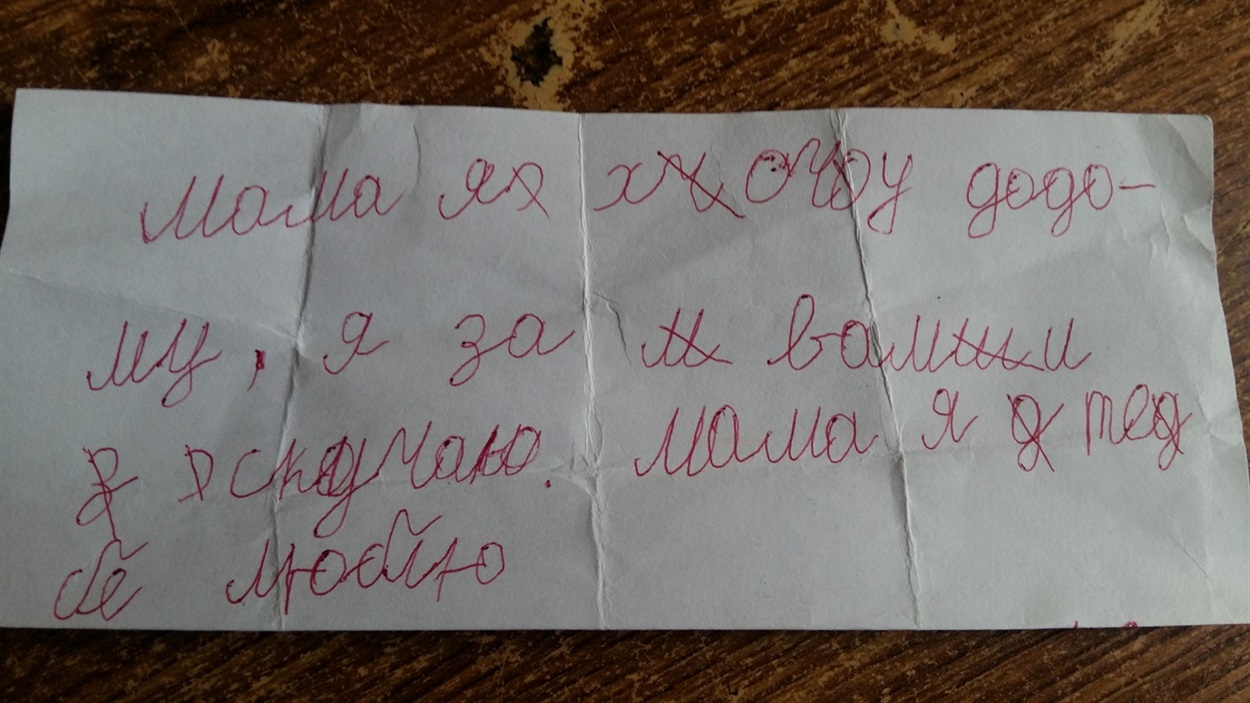 мама я хочу додо-
му, я за вами
скучаю. мама я те
бе люблю